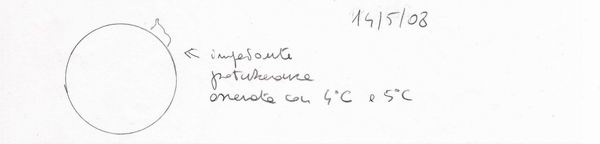 14/5/08
← imponente
protuberanza
osservata con 4°C e 5°C